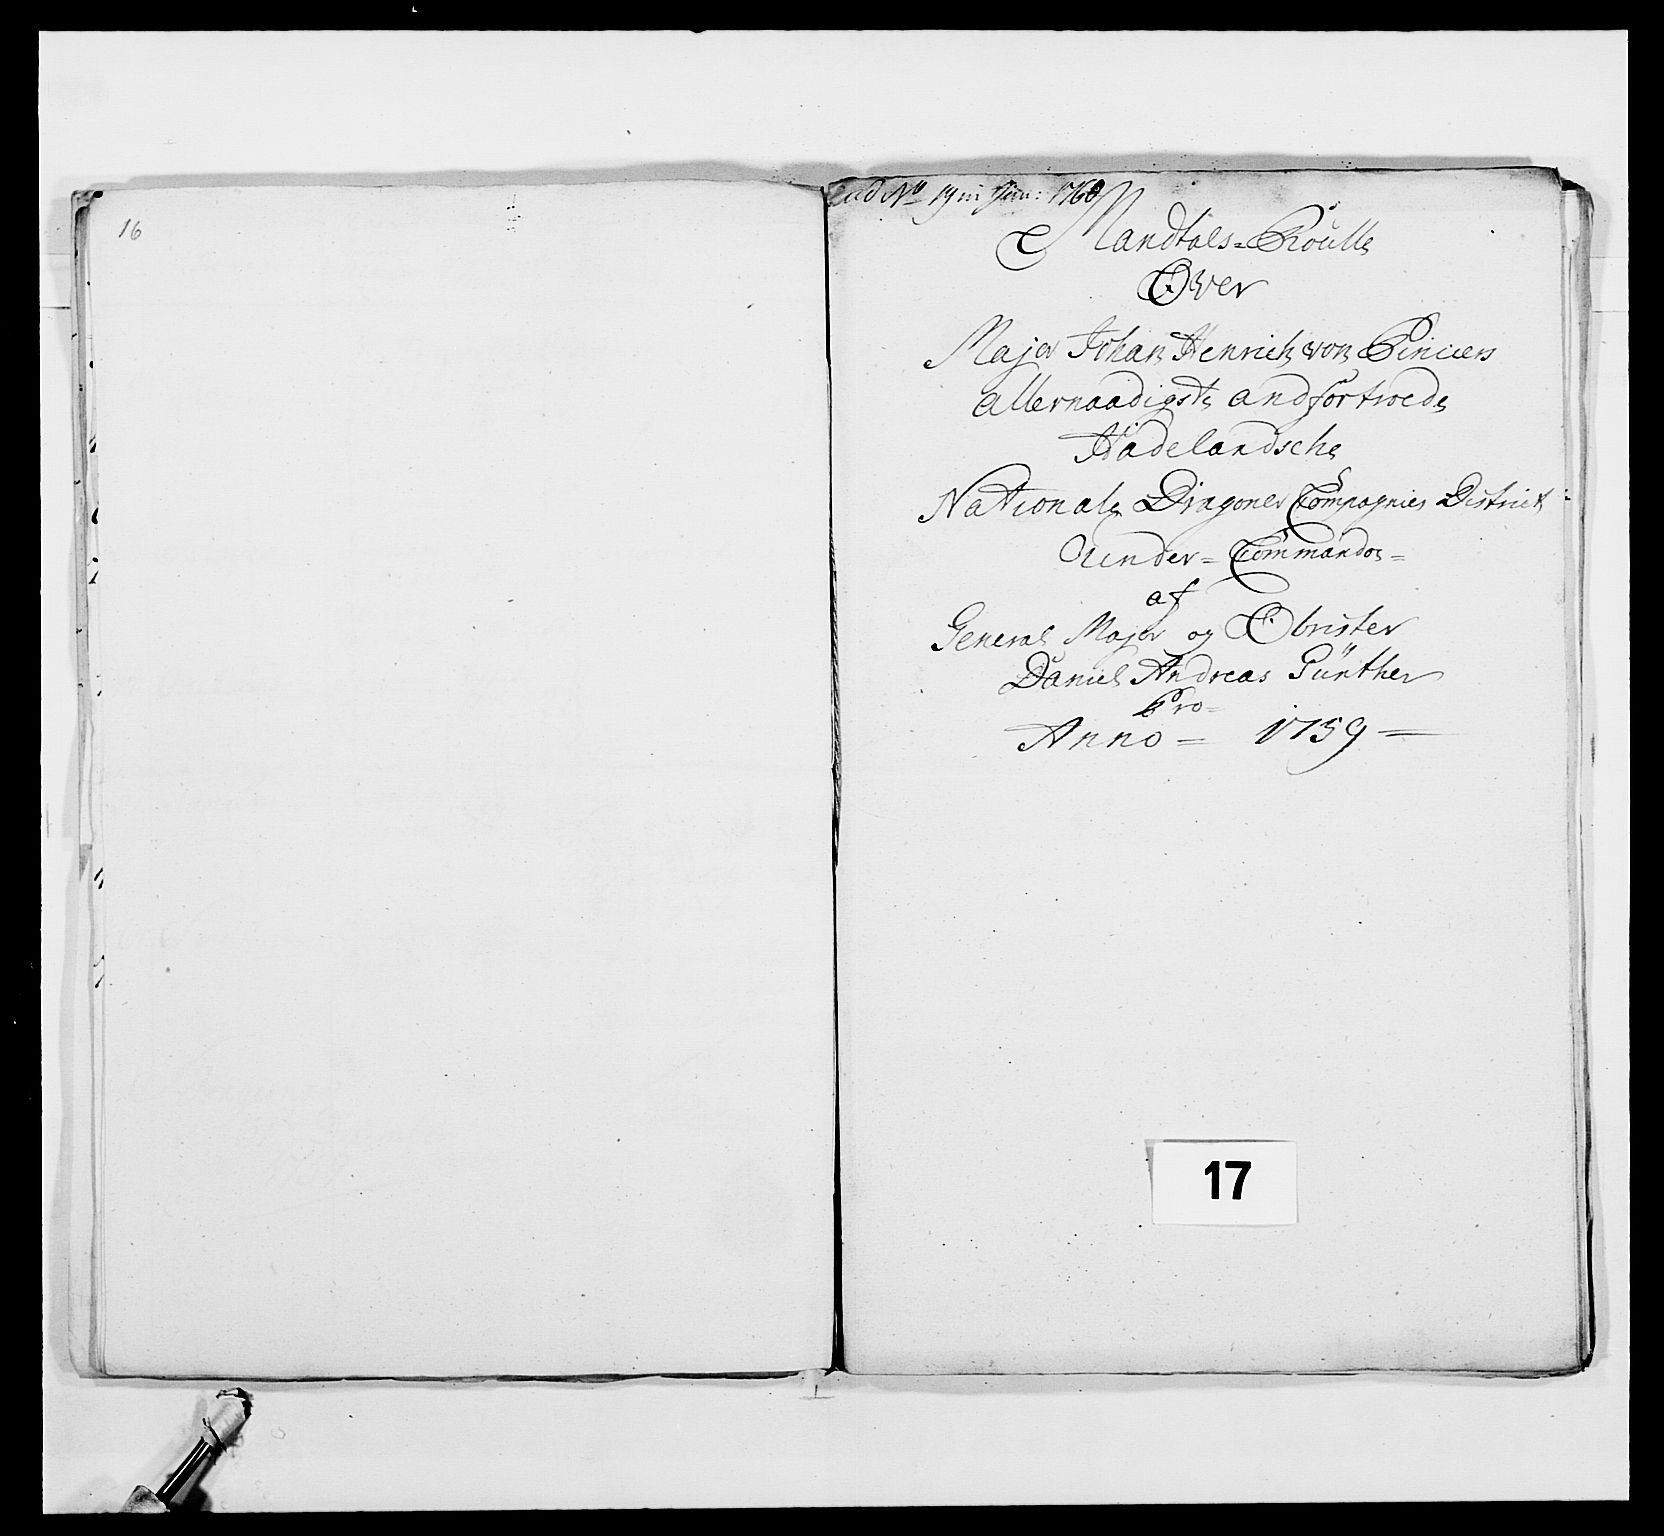 16
ad No 19 in Jun: 1760
Mandtals=Roulle
Over
Major Johan Henrich von Pinciers
allernaadigste andfortroede
Hadelandsche
Nationale Dragoner Compagnies District
Under=Commando=
af
General Major og Obrister
Daniel Andreas Günther
Pro=
Anno= 1759
17